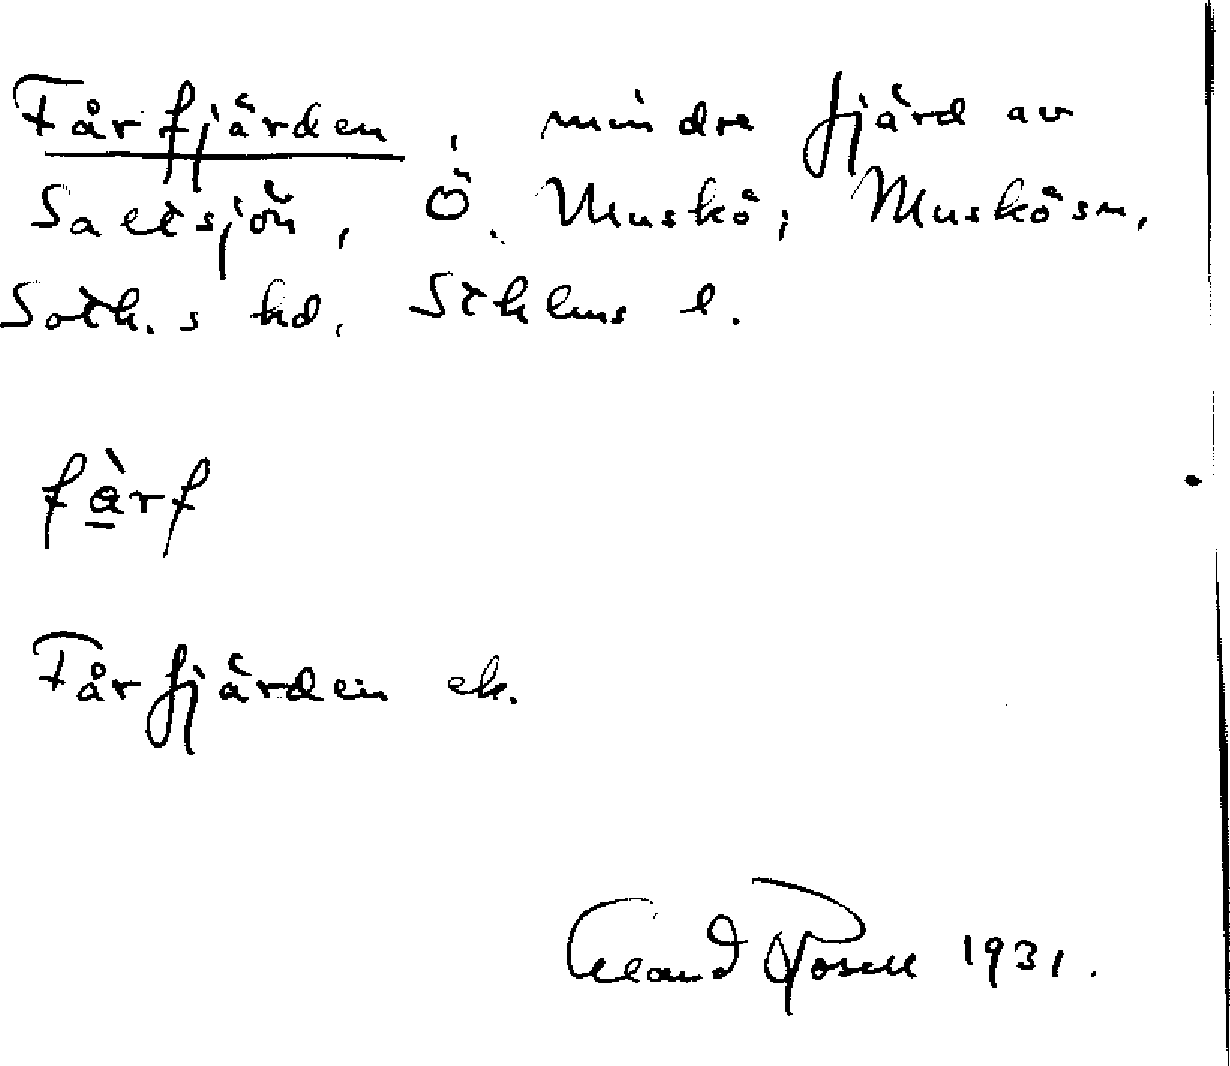 Fårfjärden, mindre fjärd av
Saltsjön, Ö. Muskö; Muskösn,
Soth.s hd, Sthlms l.
fàrf
Fårfjärden ek.
Rosell 1931.